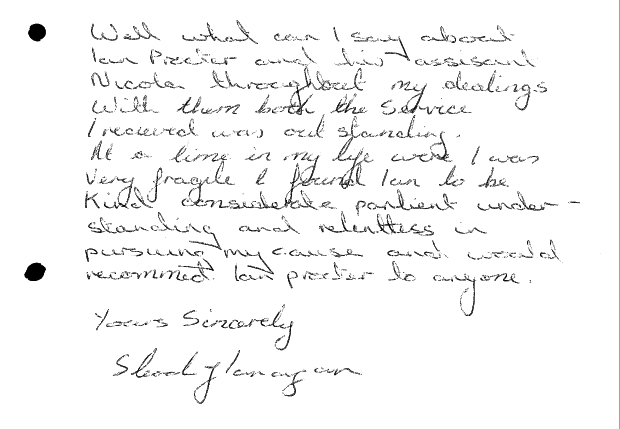 Well what can I say about
Ian Procter and his assisant
Nicola throughout my dealings
With them both the Service
I recieved was out standing.
At a time in my life were I was
Very fragile I found Ian to be
Kind considerate patient under-
standing and relentless in
pursuing my cause and would
recommed Ian procter to anyone.
Yours Sincerely
flanagan